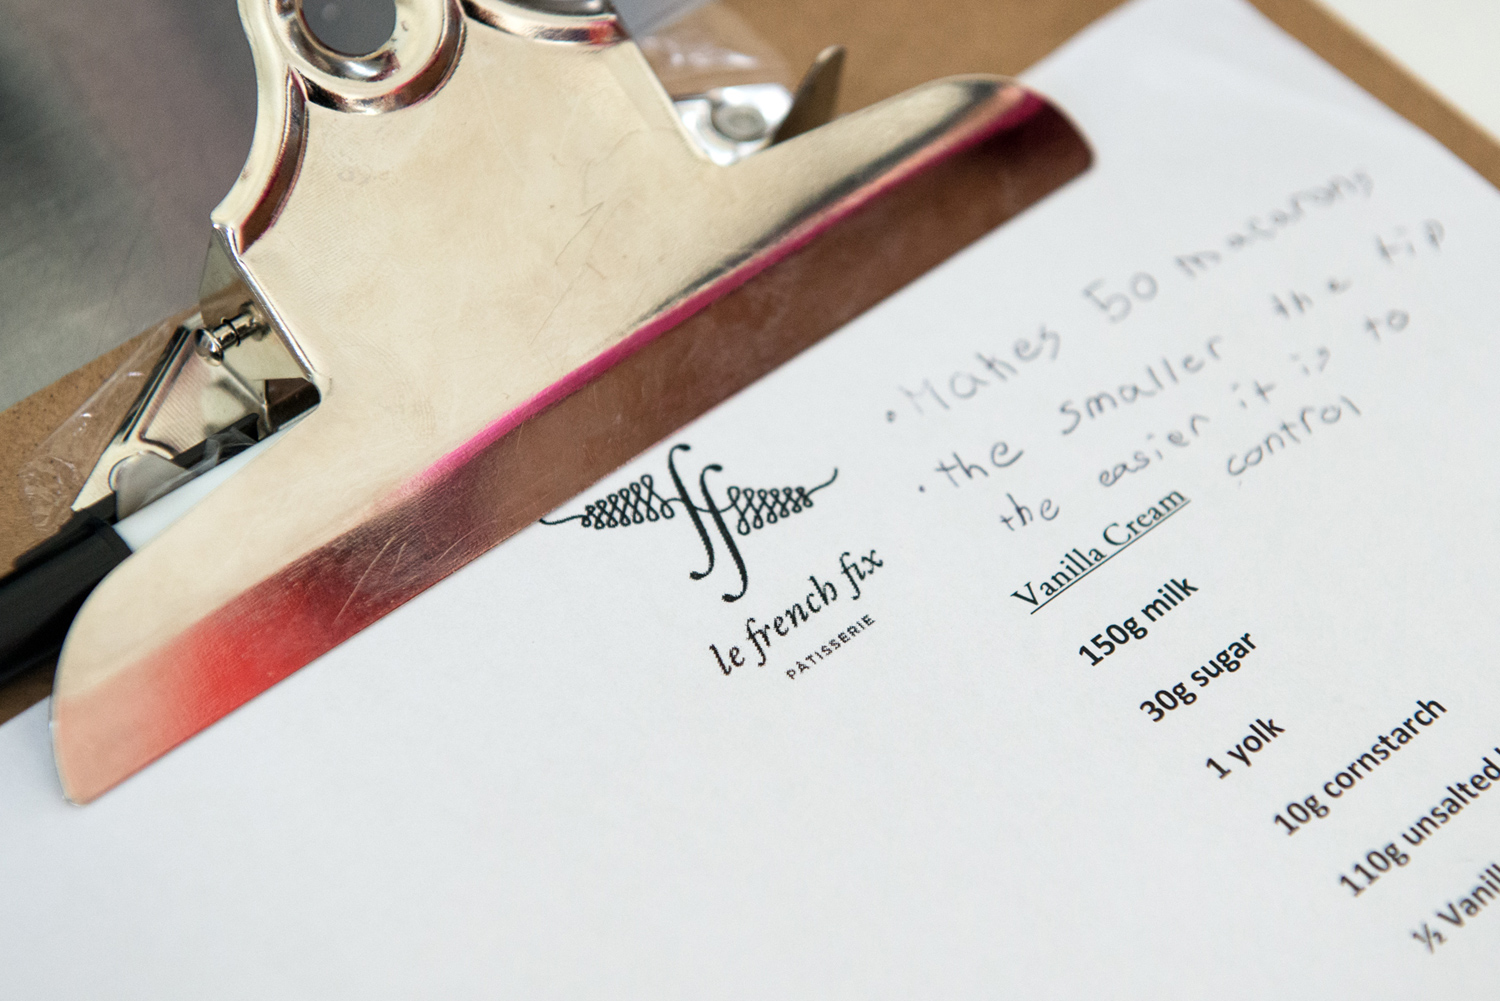 • Makes 50 macarons
• the smaller the tip
the easier it is to
control
ff
le french fix
PÂTISSERIE
Vanilla Cream
150g milk
30g sugar
1 yolk
10g cornstarch
110g unsalted
½ Vanill